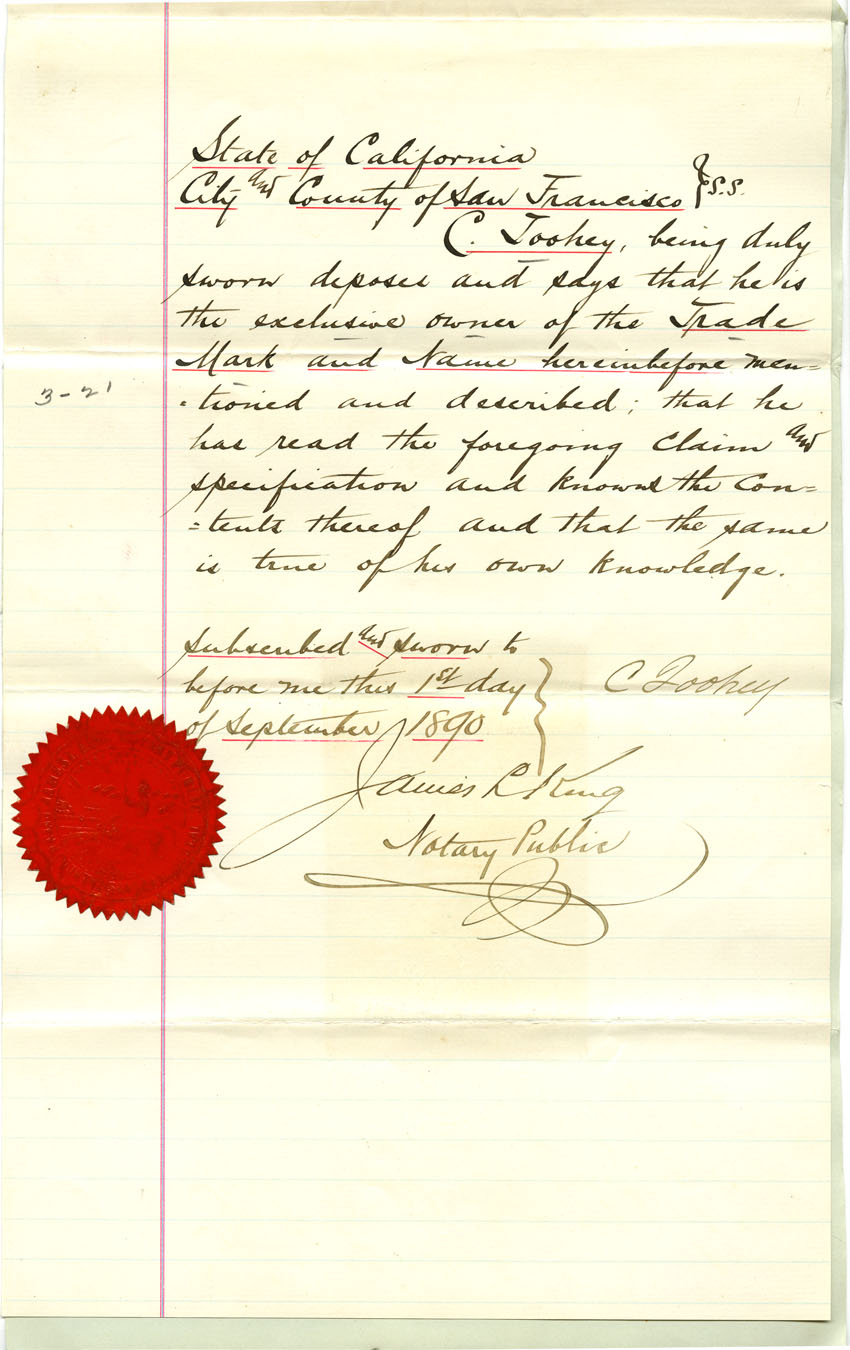 State of California
City and County of San Francisco } S.S.
C. Toohey, being duly
sworn deposes and says that he is
the exclusive owner of the Trade
Mark and Name hereinbefore men=
=tioned and described; that he
has read the foregoing Claim and
specification and knows the Con=
=tents thereof and that the same
is true of his own knowledge.
3-21
subscribed and sworn to
before me this 1st day
of September 1890
C Toohey
James L King
Notary Public